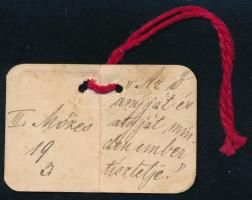 III. Mózes
19
3
„Az ő
anyját és
atyját min-
den ember
tisztelje."